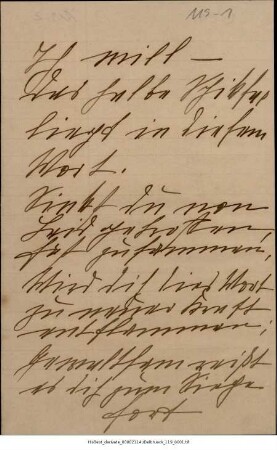 119-1
Ich will –
Das halbe Schicksal
liegt in diesem
Wort.
Sinkst du von
Leid getroffen,
hat zusammen,
Wird dich dies Wort
zu neuer Kraft
entflammen;
Gewaltsam reißt
es dich zum Siege
fort